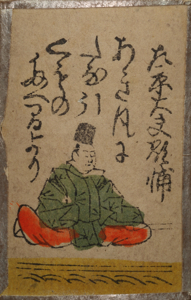 左京大夫顕輔
あき風に
たな引
くもの
たへまより